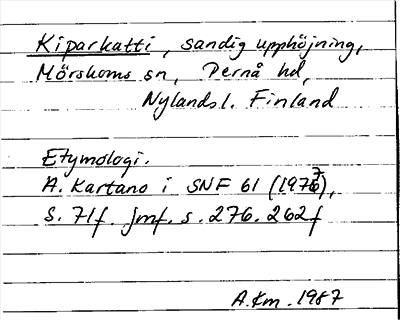 Kiparkatti, sandig upphöjning,
Mörskoms sn, Pernå hd,
Nylands l. Finland
Etymologi.
A. Kartano i SNF 61 (1977),
s. 71f. jmf. s. 276. 262f
A.Km. 1987